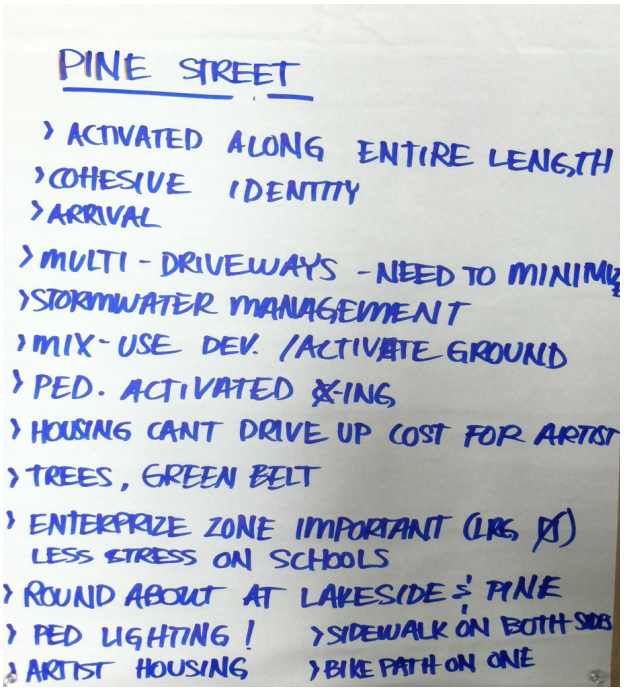 PINE STREET
> ACTIVATED ALONG ENTIRE LENGTH
> COHESIVE IDENTITY
> ARRIVAL
> MULTI - DRIVEWAYS - NEED TO MINIMIZE
> STORMWATER MANAGEMENT
> MIX-USE DEV. / ACTIVATE GROUND
> PED. ACTIVATED X-ING
> HOUSING CANT DRIVE UP COST FOR ARTIST
> TREES, GREEN BELT
> ENTERPRIZE ZONE IMPORTANT (LRG
LESS STRESS ON SCHOOLS
> ROUND ABOUT AT LAKESIDE & PINE
> PED LIGHTING ! > SIDEWALK ON BOTH SIDES
> ARTIST HOUSING > BIKE PATH ON ONE